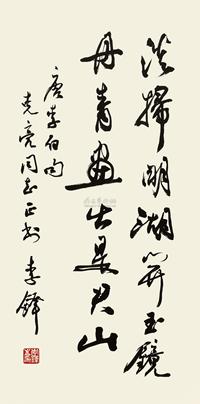 淡掃明湖開玉鏡
丹青畫出是君山
唐李白句
克亮同志正書 李鐸